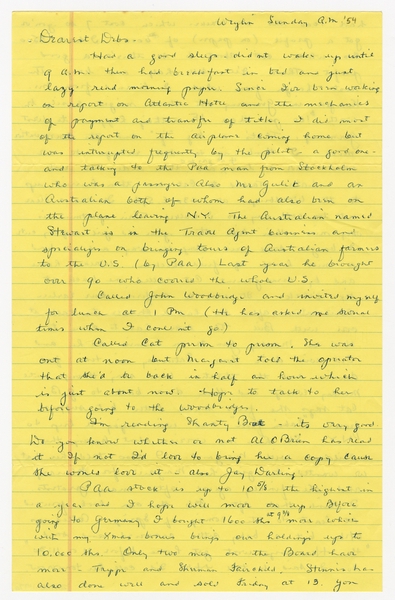 Sunday A.M. '54
Dearest Debs.
Had a good sleep - didnt wake up until
9 A.M. then had breakfast in bed and just
lazy read morning paper. Since I've been working
on report on Atlantic Hotel and the mechanics
of payment and transfer of title. I did most
of the report on the airplane coming home but
was interrupted frequently by the pilot a good one -
and talking to the Paa man from Stockholm
who was a passenger. Also Mr Gulik and an
Australian both of whom had also been on
the plane leaving N.Y. The Australian named
Stewart is in the Trade Agent business and
specializes on bringing tours of Australian farmers
to the U.S. (by Paa) Last year he brought
over 90 who covered the whole U.S.
Called John Woodbridge and invited myself
for lunch at 1 PM. (He has asked me several
times when I couldnt go)
Called Cat person to person. She was
out at noon but Margaret told the operator
that she'd be back in half an hour which
is just about now. Hope to talk to her
before going to the Woodbridges.
I'm reading Shanty Boat - its very good
Do you know whether or not Al O'Brien has read
it. If not I'd love to bring her a copy cause
she would love it - also Jay Darling.
PAA stock is up to 10 5/8 the highest in
a year and I hope will move on up. Before
going to Germany I bought 1600 shs more which at 9 7/8
with my Xmas bonus brings our holdings up to
10,000 shs. Only two men on the Board have
more - Trippe and Sherman Fairchild. Stennis has
also done well and sold Friday at 13. You